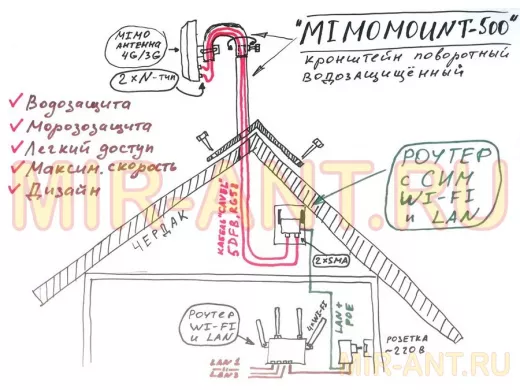 "MIMOMOUNT-500"
кронштейн поворотный
водозащищённый
MIMO
АНТЕННА
4G/3G
2×N-ТИП
✓ Водозащита
✓ Морозозащита
✓ Легкий доступ
✓ Максим. скорость
✓ Дизайн
РОУТЕР
с СИМ
WI-FI
и LAN
MIR-ANT.RU
ЧЕРДАК
КАБЕЛЬ "CAVEL"
5DFB, RG58
2×SMA
LAN+
POE
РОУТЕР
WI-FI
и LAN
4×WI-FI
РОЗЕТКА
~220В
LAN1
LAN2
MIR-ANT.RU